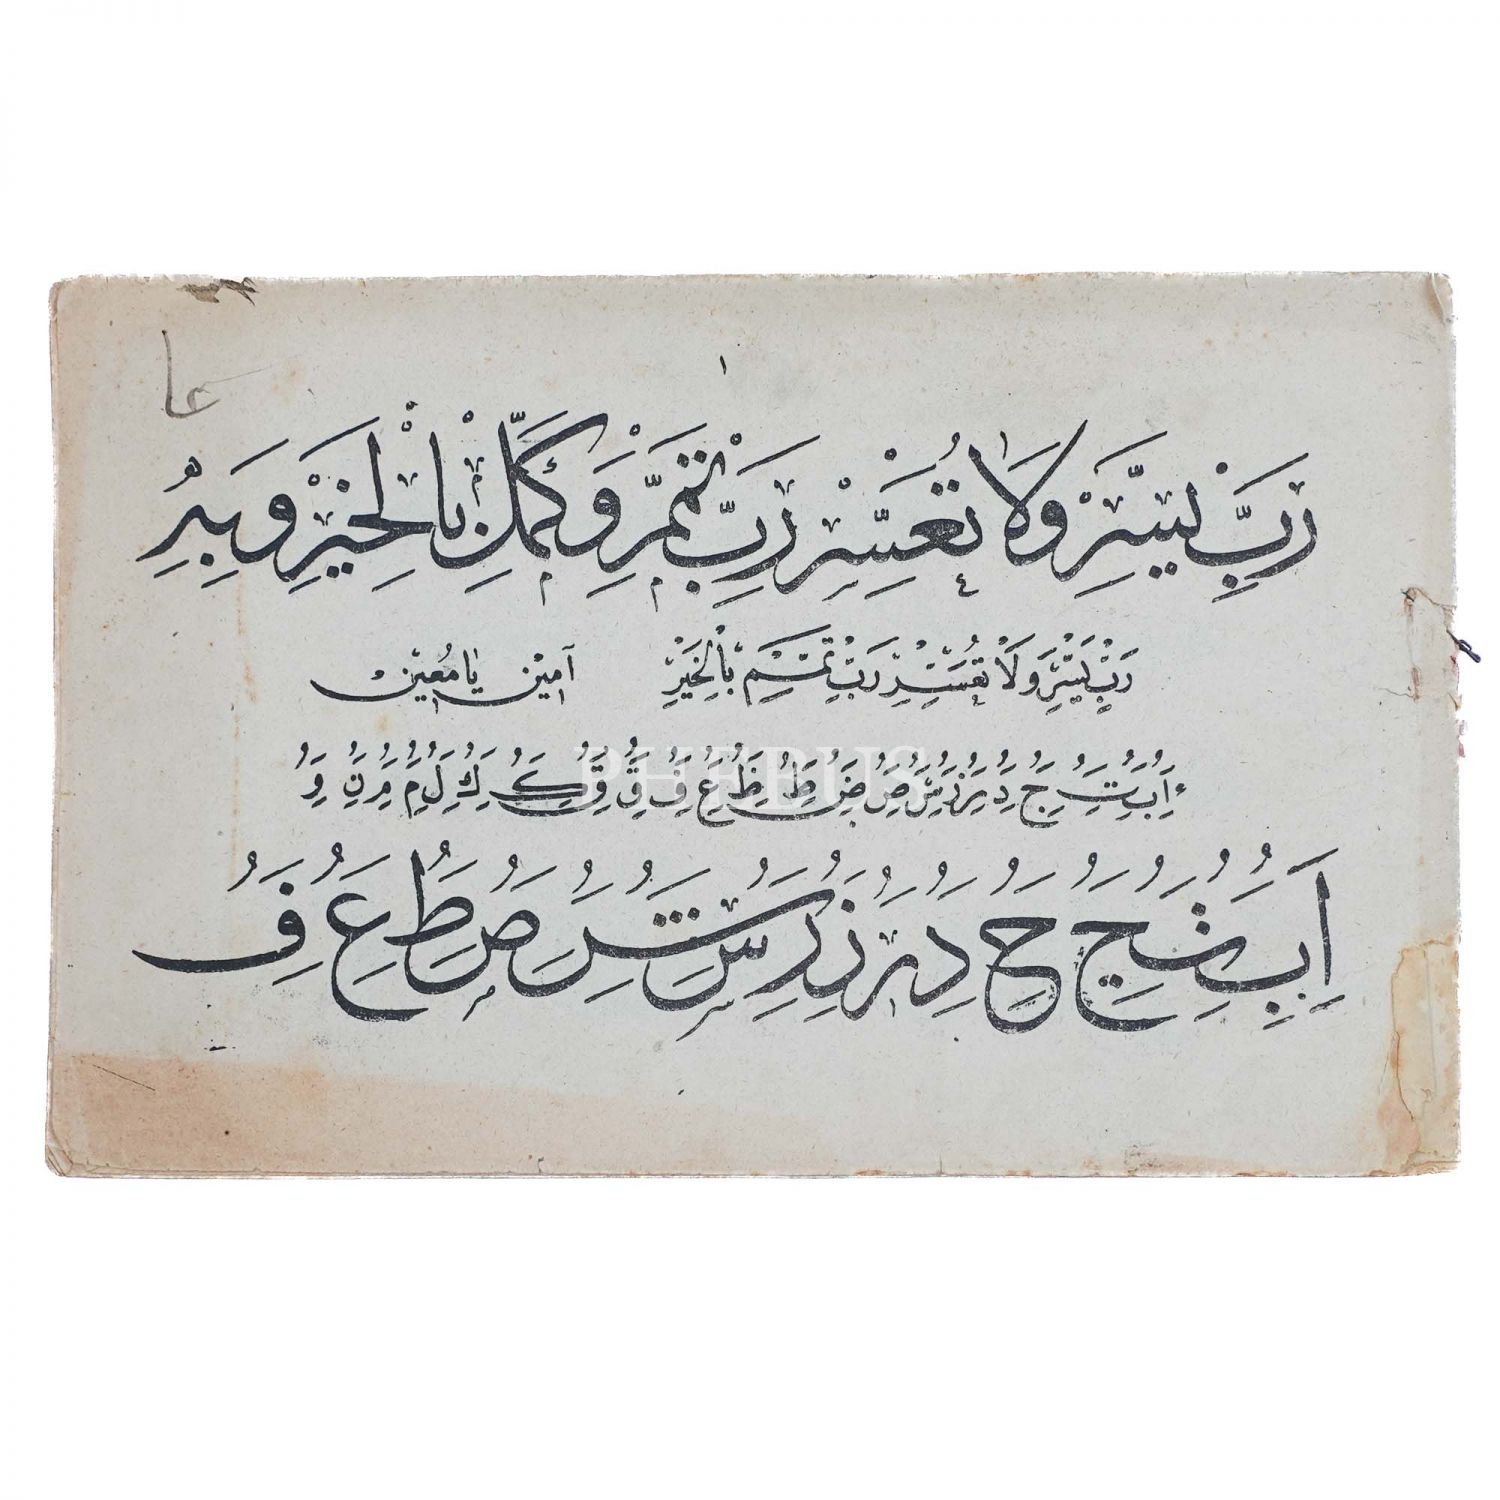 ١
رَبِّ يَسِّرْ وَلَا تُعَسِّرْ رَبِّ تَمِّمْ وَكَمِّلْ بِالْخَيْرِ وَبِهِ
رَبِّ يَسِّرْ وَلَا تُعَسِّرْ رَبِّ تَمِّمْ بِالْخَيْرِ آمِينْ يَا مُعِينْ
ء ا ب ت ج د ر ز س ص ض ط ظ ع ف ق ك ك ل م م ن و
PHEBUS
ا ب ج ح د ر ز س ش ص ط ع ف